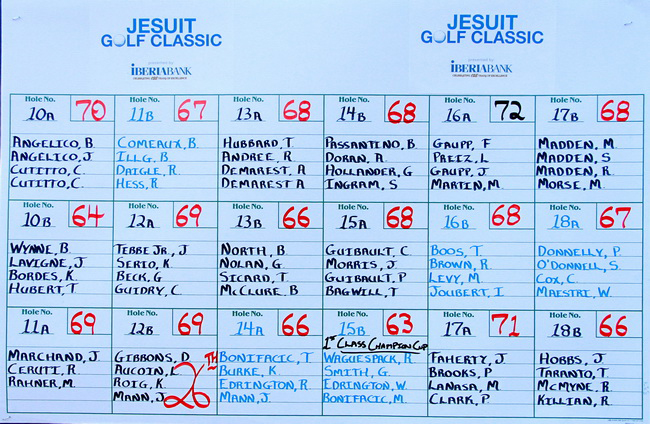 JESUIT
GOLF CLASSIC
IBERIABANK
JESUIT
GOLF CLASSIC
IBERIABANK
Hole No. 10A 70
ANGELICO, B.
ANGELICO, J.
CUTITTO, C.
CUTITTO, C.
Hole No. 11B 67
COMEAUX, B.
ILLG, B.
DAIGLE, R.
HESS, R.
Hole No. 13A 68
HUBBARD, T
ANDREE, R.
DEMAREST, A
DEMAREST A
Hole No. 14B 68
PASSANTINO, B
DORAN, A.
HOLLANDER, G
INGRAM, S
Hole No. 16A 72
GRUPP, F
PREIZ, L
GRUPP, J
MARTIN, M.
Hole No. 17B 68
MADDEN, M.
MADDEN, S
MADDEN, R
MORSE, M.
Hole No. 10B 64
WYNNE, B.
LAVIGNE, J
BORDES, K.
HUBERT, T
Hole No. 12A 69
TEBBE JR., J
SERIO, K.
BECK, G
GUIDRY, C
Hole No. 13B 66
NORTH, B
NOLAN, G.
SICARD, T.
MCCLURE, B
Hole No. 15A 68
GUIBAULT, C.
MORRIS, J
GUIBAULT, P
BAGWILL, T
Hole No. 16B 68
BOOS, T.
BROWN, R.
LEVY, M.
JOUBERT, I.
Hole No. 18A 67
DONNELLY, P.
O'DONNELL, S.
COX, C.
MAESTRI, W.
Hole No. 11A 69
MARCHAND, J.
CERUTI, R.
RAHNER, M.
Hole No. 12B 69
GIBBONS, D
AUCOIN, L
ROIG, K.
MANN, J
26TH
Hole No. 14A 66
BONIFACIC, T
BURKE, K.
EDRINGTON, R.
MANN, J.
Hole No. 15B 63
1ST CLASS CHAMPION CUP
WAGUESPACK, R.
SMITH, G.
EDRINGTON, W.
BONIFACIC, M.
Hole No. 17A 71
FAHERTY, J.
BROOKS, P
LANASA, M
CLARK, P.
Hole No. 18B 66
HOBBS, J
TARANTO, T.
MCMYNE, R.
KILLIAN, R.